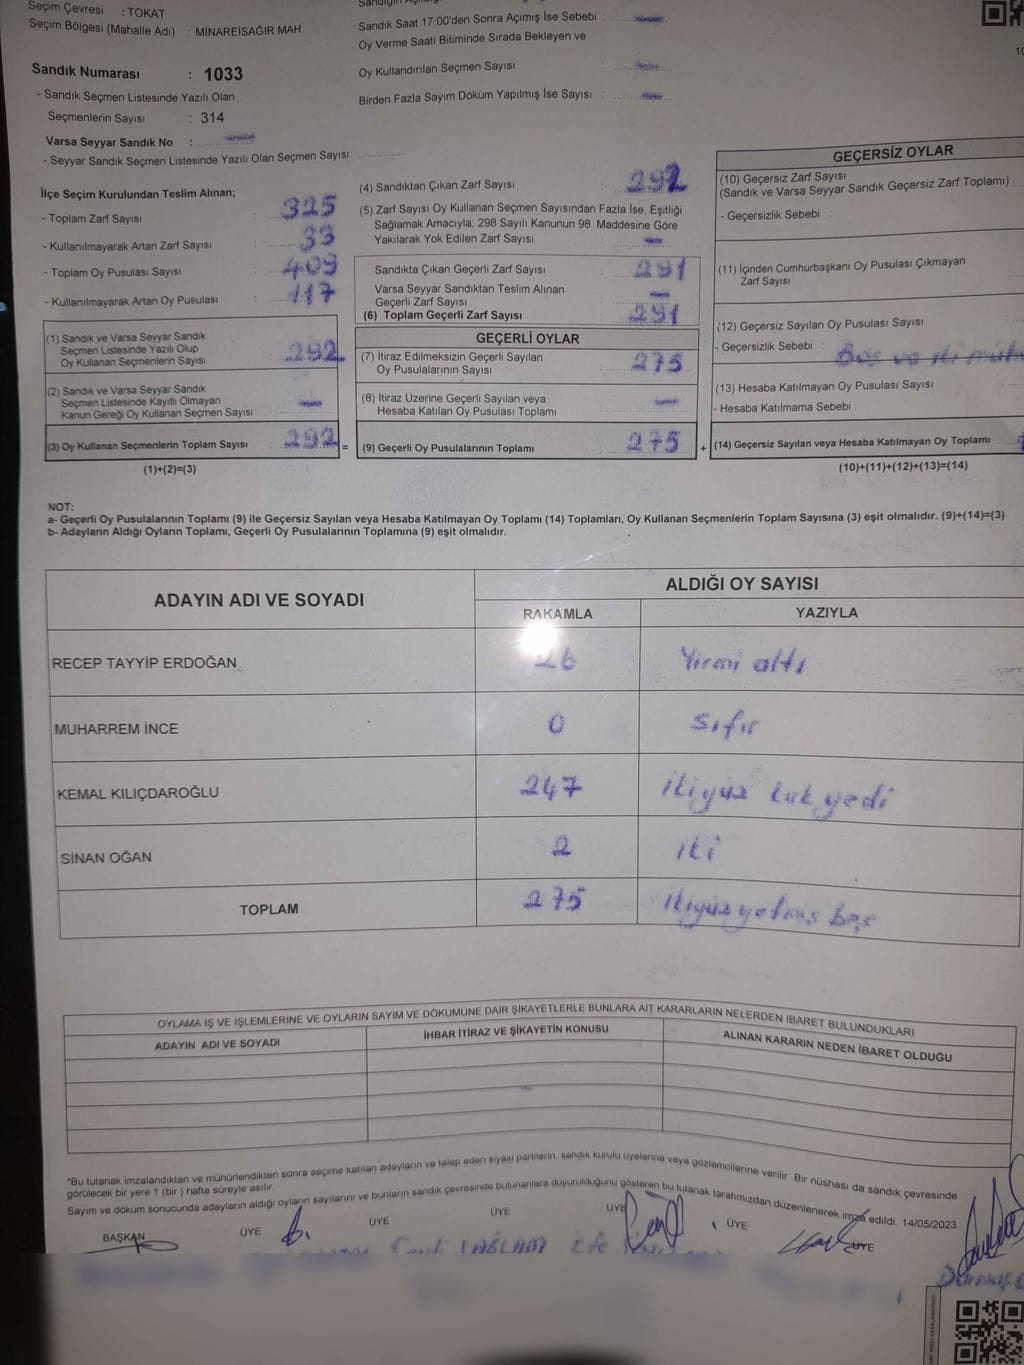 Seçim Çevresi : TOKAT
Seçim Bölgesi (Mahalle Adı) : MİNAREİSAĞIR MAH.
Sandık Numarası : 1033
- Sandık Seçmen Listesinde Yazılı Olan
Seçmenlerin Sayısı : 314
Varsa Seyyar Sandık No :
- Seyyar Sandık Seçmen Listesinde Yazılı Olan Seçmen Sayısı:
Sandık Saat 17:00'den Sonra Açımış İse Sebebi :
Oy Verme Saati Bitiminde Sırada Bekleyen ve
Oy Kullandırılan Seçmen Sayısı :
Birden Fazla Sayım Döküm Yapılmış İse Sayısı :
İlçe Seçim Kurulundan Teslim Alınan;
- Toplam Zarf Sayısı : 325
- Kullanılmayarak Artan Zarf Sayısı : 33
- Toplam Oy Pusulası Sayısı : 409
- Kullanılmayarak Artan Oy Pusulası : 117
(1) Sandık ve Varsa Seyyar Sandık
Seçmen Listesinde Yazılı Olup
Oy Kullanan Seçmenlerin Sayısı : 292
(2) Sandık ve Varsa Seyyar Sandık
Seçmen Listesinde Kayıtlı Olmayan
Kanun Gereği Oy Kullanan Seçmen Sayısı :
(3) Oy Kullanan Seçmenlerin Toplam Sayısı : 292 =
(1)+(2)=(3)
(4) Sandıktan Çıkan Zarf Sayısı : 292
(5) Zarf Sayısı Oy Kullanan Seçmen Sayısından Fazla İse, Eşitliği
Sağlamak Amacıyla; 298 Sayılı Kanunun 98. Maddesine Göre
Yakılarak Yok Edilen Zarf Sayısı :
Sandıkta Çıkan Geçerli Zarf Sayısı : 291
Varsa Seyyar Sandıktan Teslim Alınan
Geçerli Zarf Sayısı :
(6) Toplam Geçerli Zarf Sayısı : 291
GEÇERLİ OYLAR
(7) İtiraz Edilmeksizin Geçerli Sayılan
Oy Pusulalarının Sayısı : 275
(8) İtiraz Üzerine Geçerli Sayılan veya
Hesaba Katılan Oy Pusulası Toplamı :
(9) Geçerli Oy Pusulalarının Toplamı : 275 +
GEÇERSİZ OYLAR
(10) Geçersiz Zarf Sayısı
(Sandık ve Varsa Seyyar Sandık Geçersiz Zarf Toplamı) :
- Geçersizlik Sebebi :
(11) İçinden Cumhurbaşkanı Oy Pusulası Çıkmayan
Zarf Sayısı :
(12) Geçersiz Sayılan Oy Pusulası Sayısı :
- Geçersizlik Sebebi : Boş ve iki
(13) Hesaba Katılmayan Oy Pusulası Sayısı :
- Hesaba Katılmama Sebebi :
(14) Geçersiz Sayılan veya Hesaba Katılmayan Oy Toplamı :
(10)+(11)+(12)+(13)=(14)
NOT:
a- Geçerli Oy Pusulalarının Toplamı (9) ile Geçersiz Sayılan veya Hesaba Katılmayan Oy Toplamı (14) Toplamları, Oy Kullanan Seçmenlerin Toplam Sayısına (3) eşit olmalıdır. (9)+(14)=(3)
b- Adayların Aldığı Oyların Toplamı, Geçerli Oy Pusulalarının Toplamına (9) eşit olmalıdır.
ADAYIN ADI VE SOYADI
ALDIĞI OY SAYISI
RAKAMLA YAZIYLA
RECEP TAYYİP ERDOĞAN 26 Yirmi altı
MUHARREM İNCE 0 sıfır
KEMAL KILIÇDAROĞLU 247 ikiyüz kırk yedi
SİNAN OĞAN 2 iki
TOPLAM 275 ikiyüz yetmiş beş
OYLAMA İŞ VE İŞLEMLERİNE VE OYLARIN SAYIM VE DÖKÜMÜNE DAİR ŞİKAYETLERLE BUNLARA AİT KARARLARIN NELERDEN İBARET BULUNDUKLARI
ADAYIN ADI VE SOYADI İHBAR İTİRAZ VE ŞİKAYETİN KONUSU ALINAN KARARIN NEDEN İBARET OLDUĞU
*Bu tutanak imzalandıktan ve mühürlendikten sonra seçime katılan adayların ve talep eden siyasi partilerin sandık kurulu üyelerine veya gözlemcilerine verilir. Bir nüshası da sandık çevresinde
görülecek bir yere 1 (bir) hafta süreyle asılır.
Sayım ve döküm sonucunda adayların aldığı oyların sayılarını ve bunların sandık çevresinde bulunanlara duyurulduğunu gösteren bu tutanak tarafımızdan düzenlenerek imza edildi. 14/05/2023
BAŞKAN ÜYE ÜYE ÜYE ÜYE ÜYE ÜYE